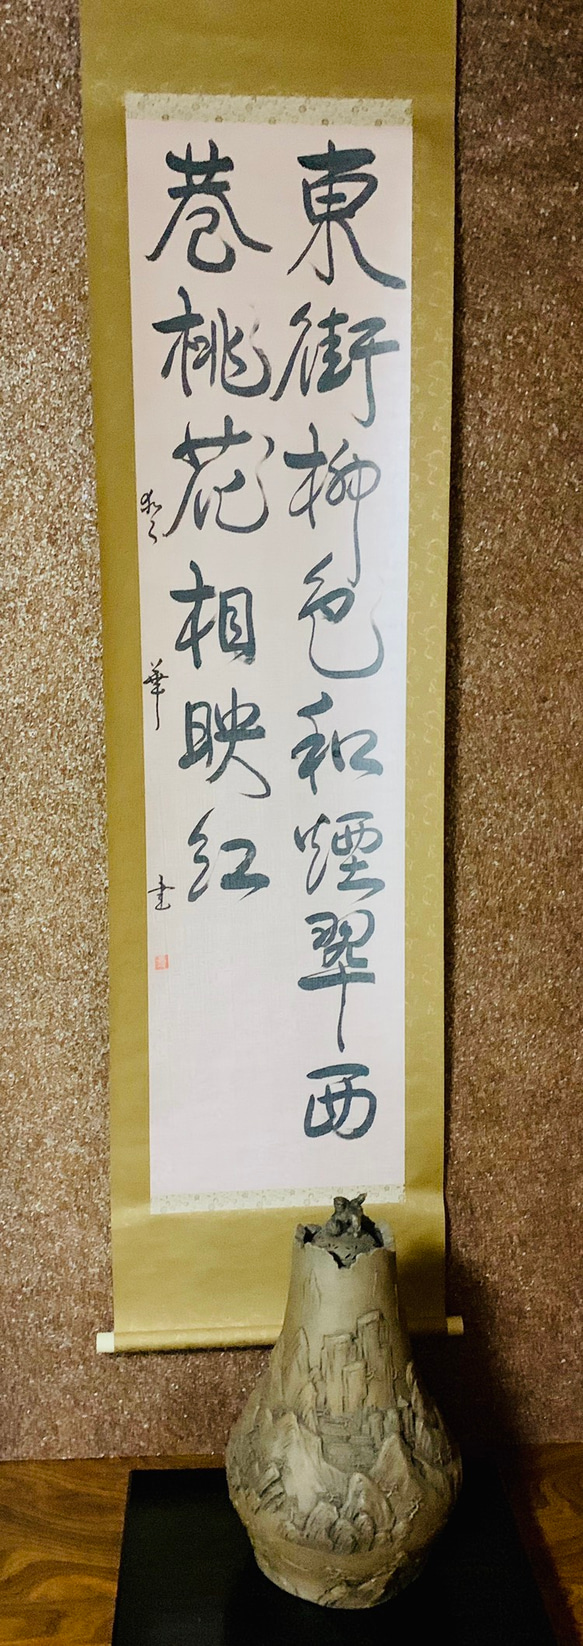 東街柳色和煙翠西
巷桃花相映紅
華
書